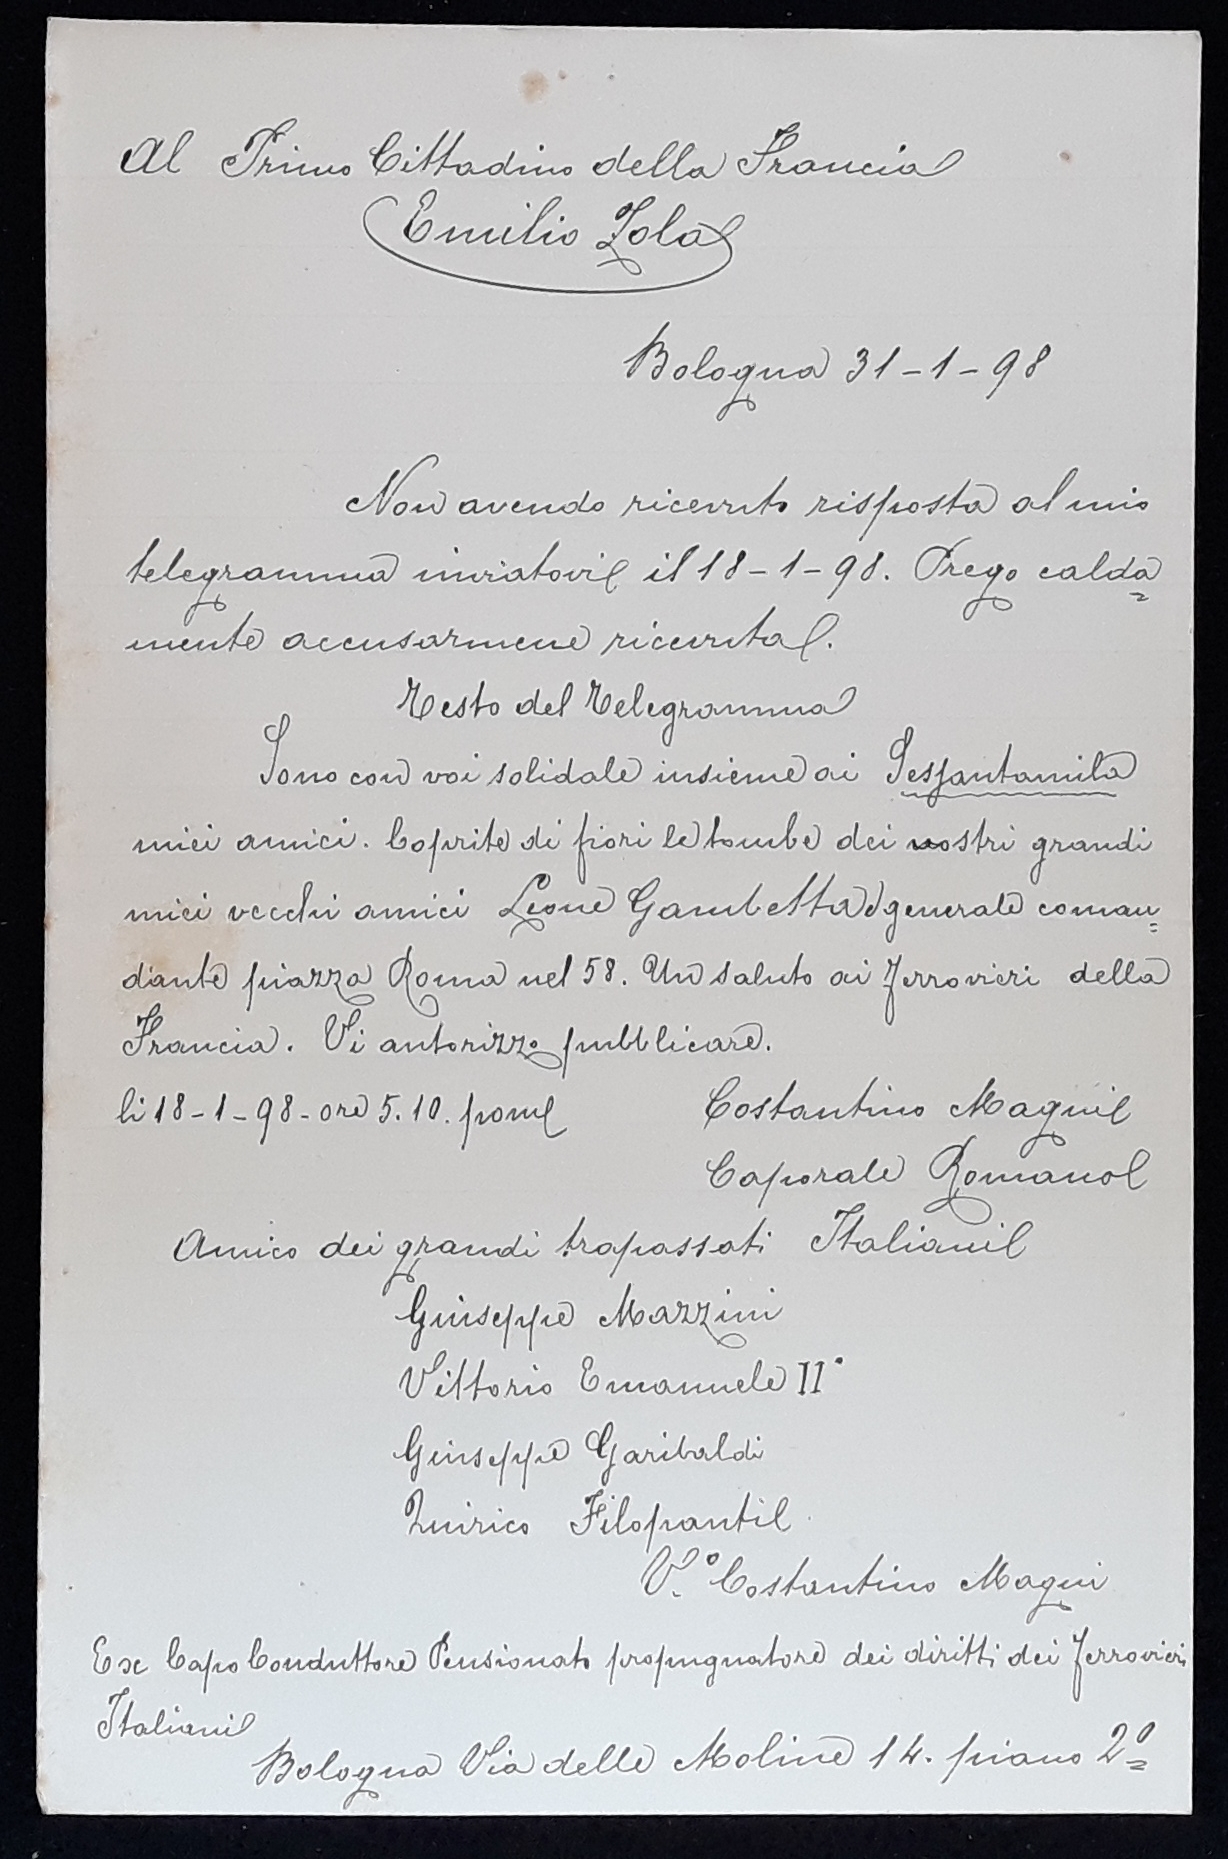 Al Primo Cittadino della Francia
Emilio Zola
Bologna 31-1-98
Non avendo ricevuto risposta al mio
telegramma inviatovi il 18-1-98. Prego calda=
mente accusarmene ricevuta.
Testo del Telegramma
Sono con voi solidale insieme ai Sessantamila
miei amici. Coprite di fiori le tombe dei vostri grandi
miei vecchi amici Leone Gambetta e generale coman=
dante piazza Roma nel 58. Un saluto ai ferrovieri della
Francia. Vi autorizzo pubblicare.
li 18-1-98- ore 5.10. pom
Costantino Magni
Caporale Romano
Amico dei grandi trapassati Italiani
Giuseppe Mazzini
Vittorio Emanuele II°
Giuseppe Garibaldi
Quirico Filopanti
V.° Costantino Magni
Ex Capo Conduttore Pensionato propugnatore dei diritti dei ferrovieri
Italiani
Bologna Via delle Moline 14. piano 2°